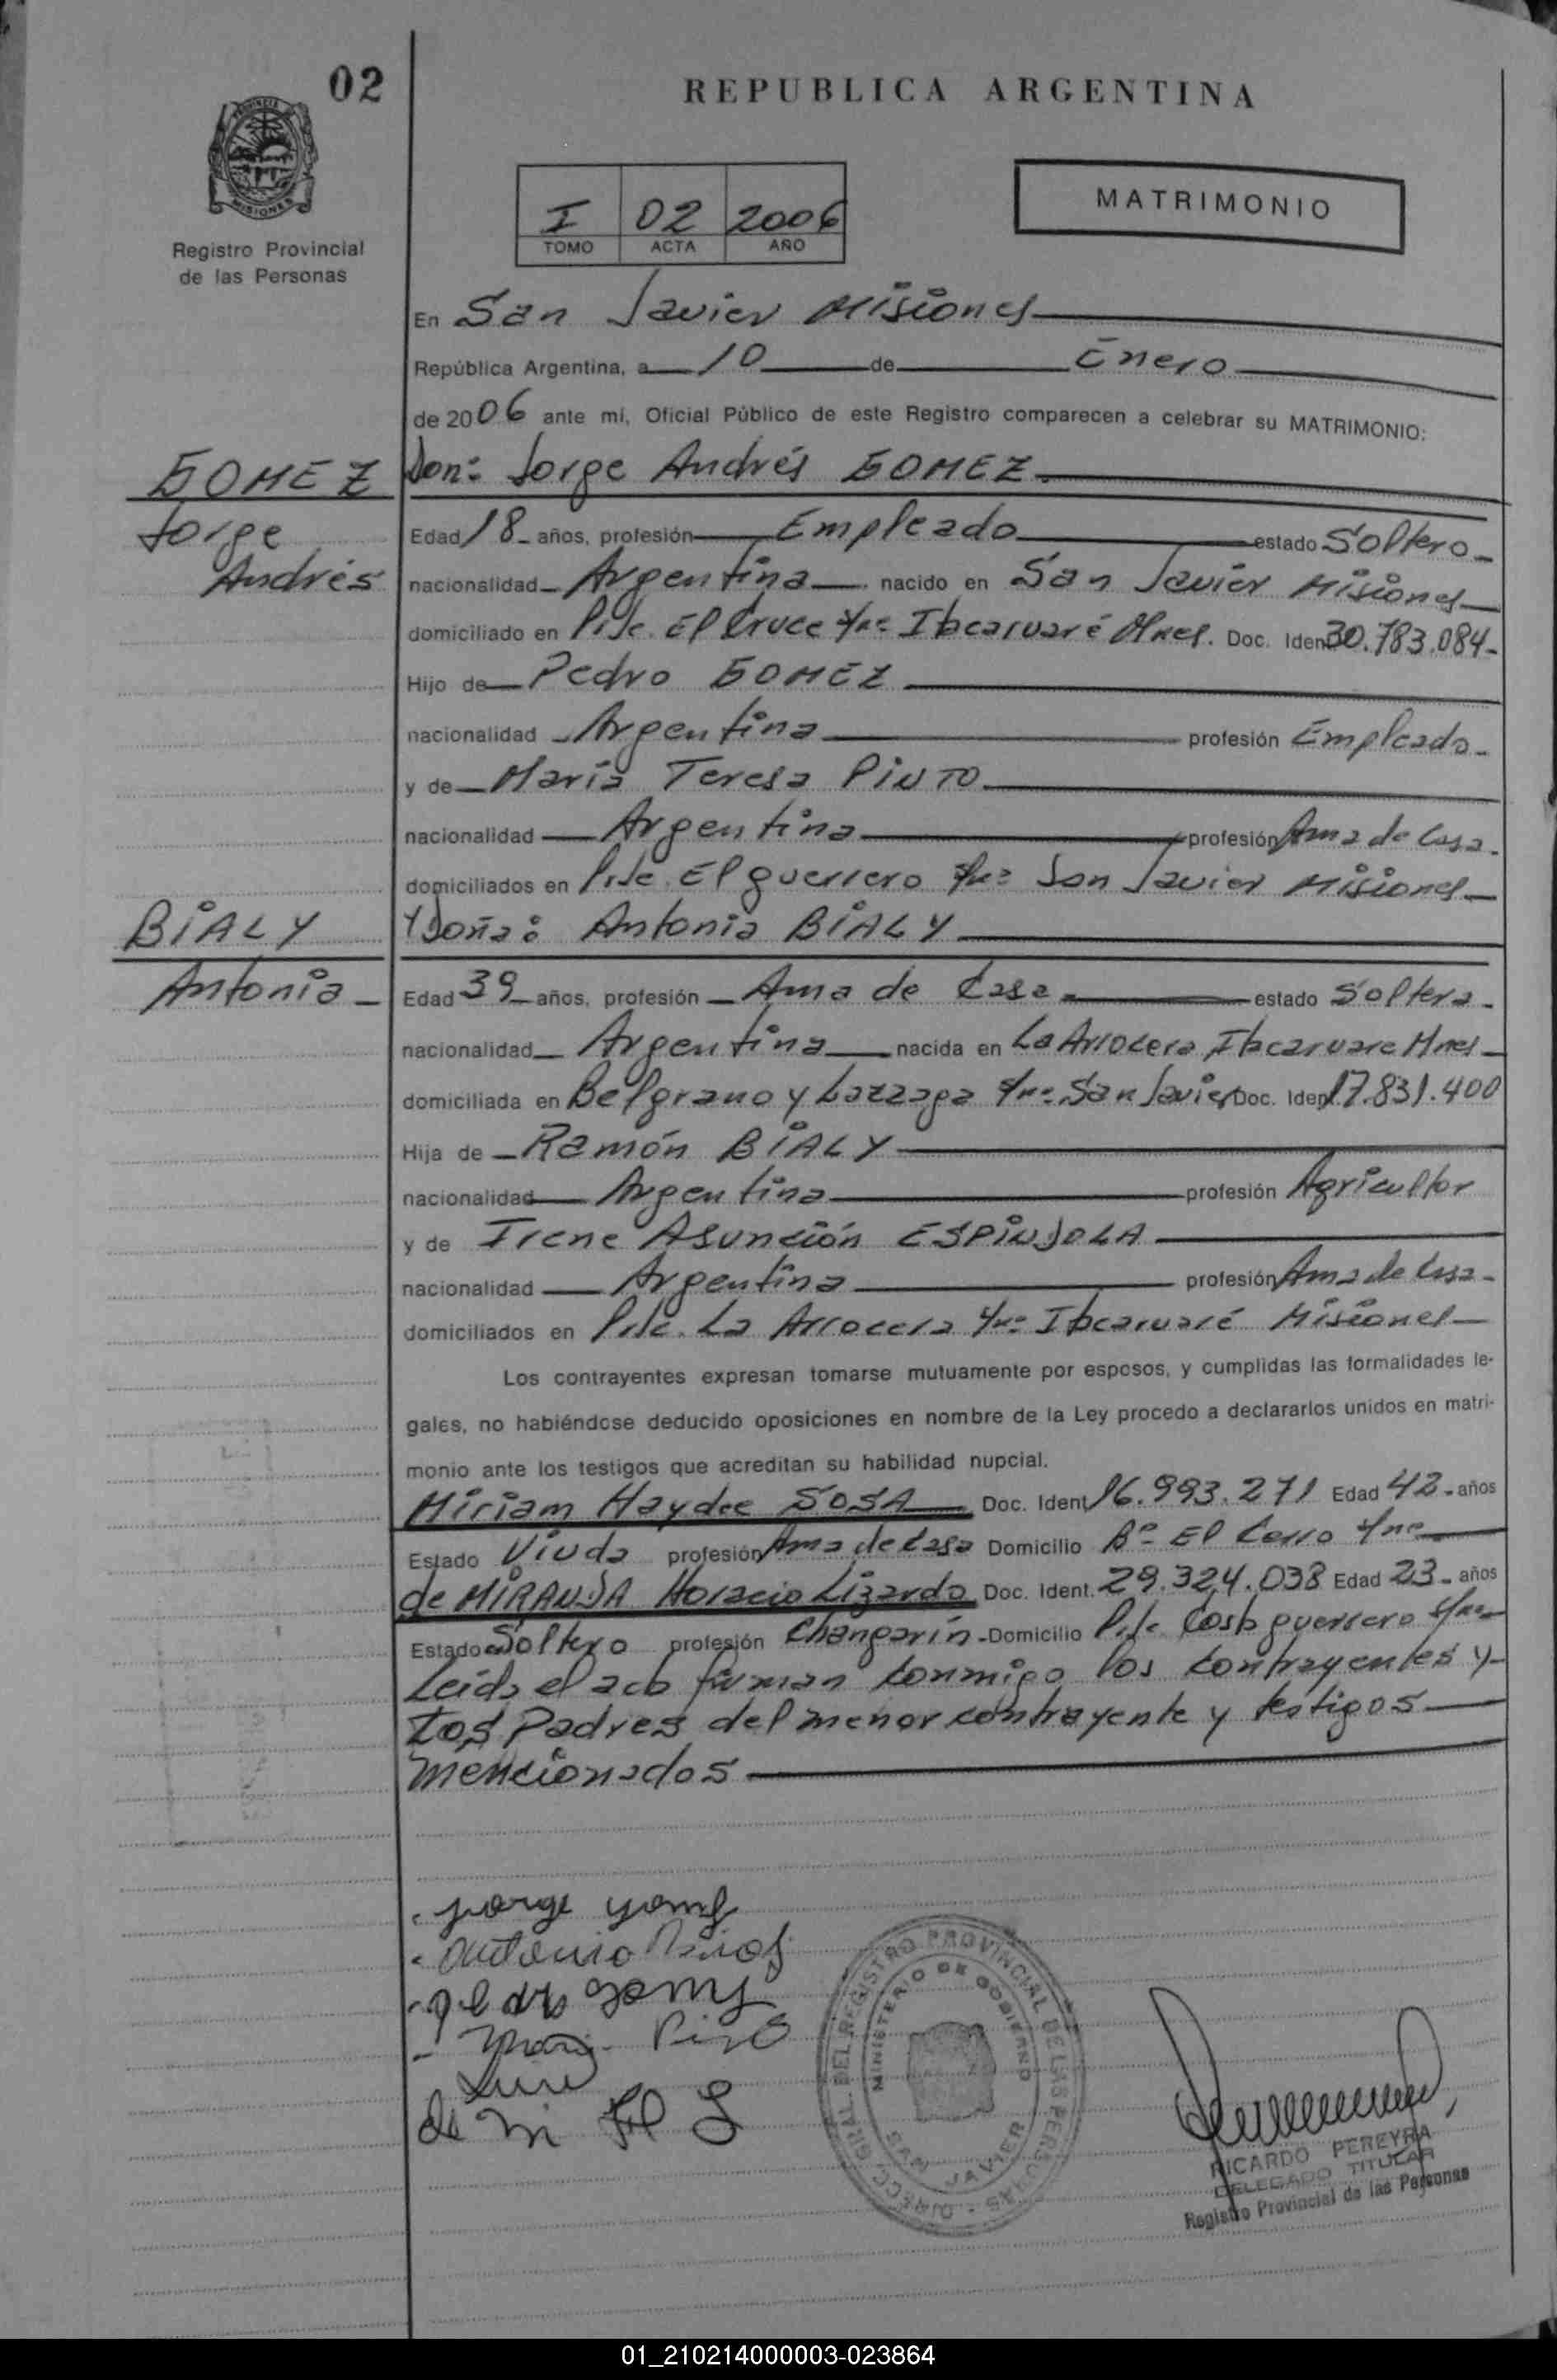 02
REPUBLICA ARGENTINA
PROVINCIA DE
MISIONES
Registro Provincial
de las Personas
I 02 2006
TOMO ACTA AÑO
MATRIMONIO
En San Javier Misiones
República Argentina, a 10 de Enero
de 2006 ante mí, Oficial Público de este Registro comparecen a celebrar su MATRIMONIO:
GOMEZ
Jorge
Andrés
Don: Jorge Andrés GOMEZ
Edad 18 años, profesión Empleado estado Soltero
nacionalidad Argentina nacido en San Javier Misiones
domiciliado en Pje. El Cruce Ibcaruaré Mnes. Doc. Iden 30.783.084
Hijo de Pedro GOMEZ
nacionalidad Argentina profesión Empleado
y de María Teresa PINTO
nacionalidad Argentina profesión Ama de Casa
domiciliados en Pje. El guerrero San Javier Misiones
BIALY
Antonia
Y Doña: Antonia BIALY
Edad 39 años, profesión Ama de Casa estado Soltera
nacionalidad Argentina nacida en La Arrocera Ibcaruare Mnes
domiciliada en Belgrano y San Javier Doc. Iden 17.831.400
Hija de Ramón BIALY
nacionalidad Argentina profesión Agricultor
y de Irene Asunción ESPINDOLA
nacionalidad Argentina profesión Ama de Casa
domiciliados en Pje. La Arrocera Ibcaruaré Misiones
Los contrayentes expresan tomarse mutuamente por esposos, y cumplidas las formalidades le-
gales, no habiéndose deducido oposiciones en nombre de la Ley procedo a declararlos unidos en matri-
monio ante los testigos que acreditan su habilidad nupcial.
Miriam Haydee SOSA Doc. Ident 16.993.271 Edad 42 años
Estado Viuda profesión Ama de Casa Domicilio Bº El Cerro
de MIRANDA Horacio Lizardo Doc. Ident. 29.324.038 Edad 23 años
Estado Soltero profesión Changarín Domicilio Pje. Costa guerrero
Leída el acta firman conmigo los contrayentes y
los Padres del menor contrayente y testigos
mencionados
DIRECC. GRAL. DEL REGISTRO PROVINCIAL DE LAS PERSONAS
MINISTERIO DE GOBIERNO
SAN JAVIER
RICARDO PEREYRA
DELEGADO TITULAR
Registro Provincial de las Personas
01_210214000003-023864